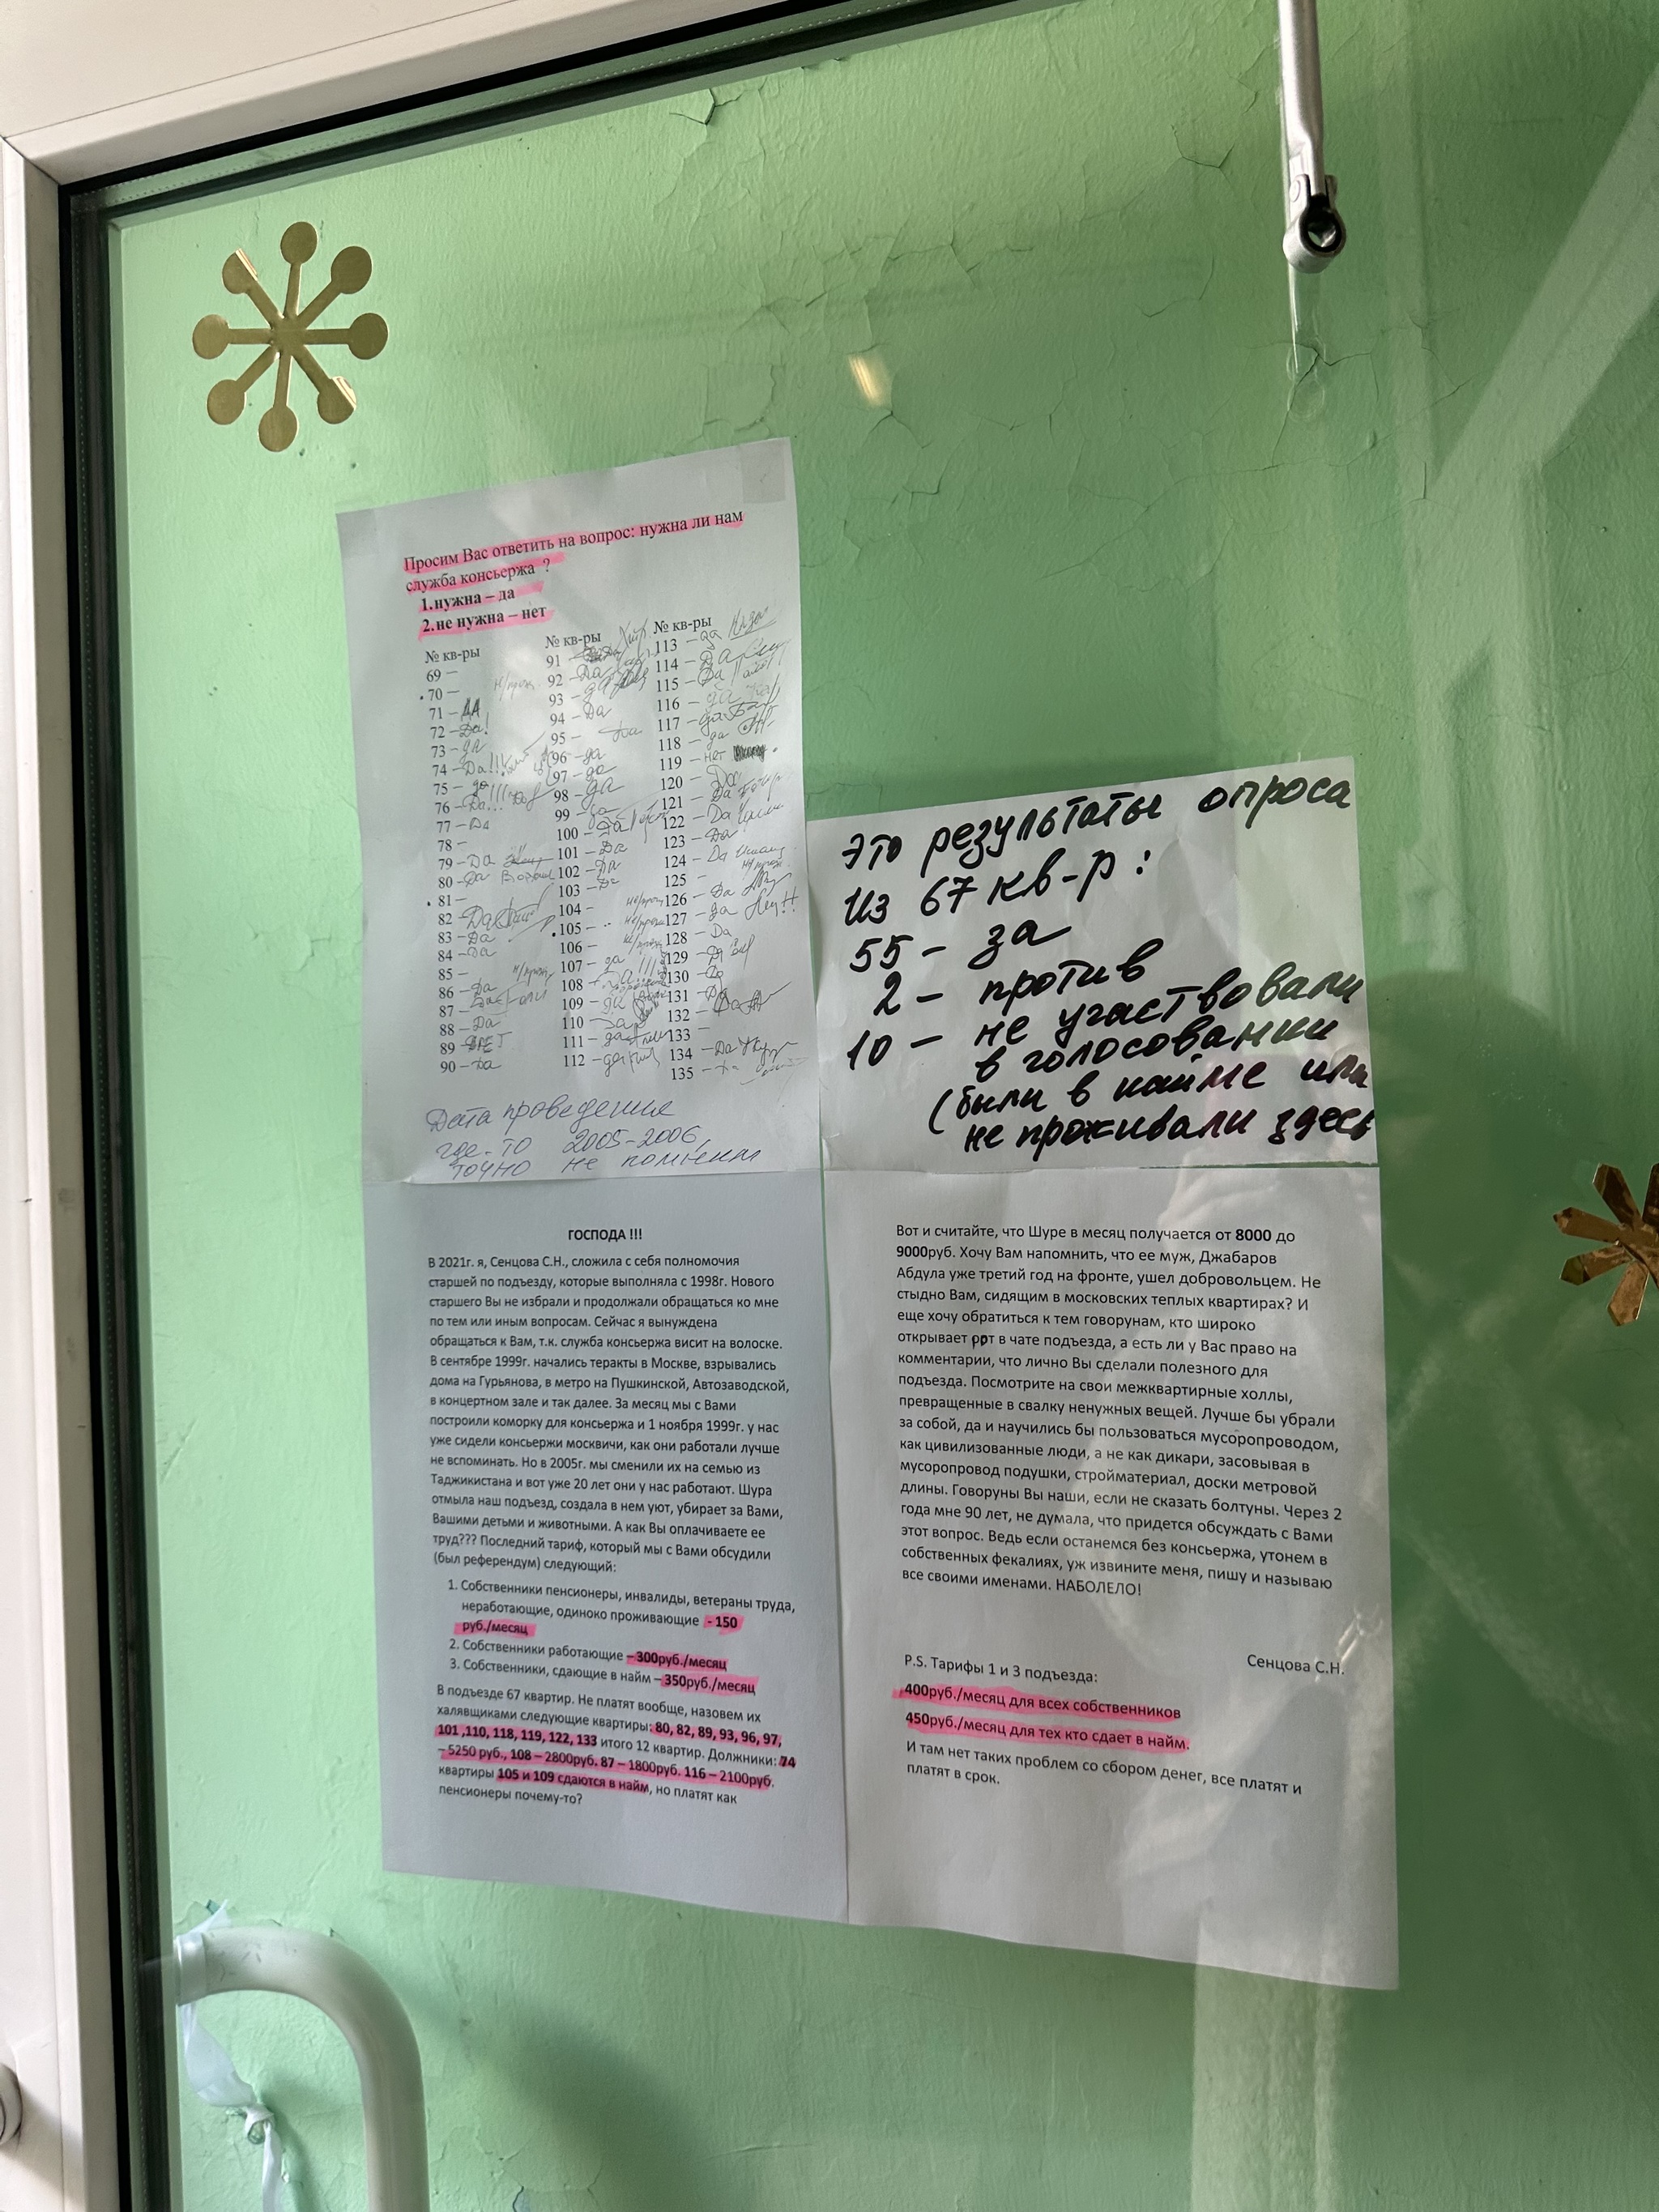 Просим Вас ответить на вопрос: нужна ли нам
служба консьержа ?
1.нужна – да
2.не нужна – нет
№ кв-ры
69 –
70 –
71 – ДА
72 – Да!
73 – да
74 – Да!!!
75 – да
76 – Да!!!
77 – Да
78 –
79 – Да
80 – Да
81 –
82 – Да
83 – Да
84 – Да
85 –
86 – Да
87 –
88 – Да
89 –
90 – Да
№ кв-ры
91
92 – Да
93 – да
94 – Да
95 – Да
96 – да
97 – да
98 – да
99 –
100 – Да
101 – Да
102 – Да
103 – Да
104 –
105 –
106 –
107 – да
108 – Да!!!
109 – да
110 –
111 – да
112 – да
№ кв-ры
113 – да
114 – Да
115 – Да
116 – да
117 – да
118 – да
119 – нет
120 – Да
121 – Да
122 – Да
123 – Да
124 – Да
125 –
126 – Да
127 – да
128 – Да
129 – Да
130 – Да
131 – Да
132 – Да
133 –
134 – Да
135 –
Дата проведения
где-то 2005-2006,
точно не помним
Это результаты опроса
Из 67 кв-р:
55 – за
2 – против
10 – не участвовали
в голосовании
(были в найме или
не проживали здесь
ГОСПОДА !!!
В 2021г. я, Сенцова С.Н., сложила с себя полномочия
старшей по подъезду, которые выполняла с 1998г. Нового
старшего Вы не избрали и продолжали обращаться ко мне
по тем или иным вопросам. Сейчас я вынуждена
обращаться к Вам, т.к. служба консьержа висит на волоске.
В сентябре 1999г. начались теракты в Москве, взрывались
дома на Гурьянова, в метро на Пушкинской, Автозаводской,
в концертном зале и так далее. За месяц мы с Вами
построили коморку для консьержа и 1 ноября 1999г. у нас
уже сидели консьержи москвичи, как они работали лучше
не вспоминать. Но в 2005г. мы сменили их на семью из
Таджикистана и вот уже 20 лет они у нас работают. Шура
отмыла наш подъезд, создала в нем уют, убирает за Вами,
Вашими детьми и животными. А как Вы оплачиваете ее
труд??? Последний тариф, который мы с Вами обсудили
(был референдум) следующий:
1. Собственники пенсионеры, инвалиды, ветераны труда,
неработающие, одиноко проживающие - 150
руб./месяц
2. Собственники работающие – 300руб./месяц
3. Собственники, сдающие в найм – 350руб./месяц
В подъезде 67 квартир. Не платят вообще, назовем их
халявщиками следующие квартиры: 80, 82, 89, 93, 96, 97,
101 ,110, 118, 119, 122, 133 итого 12 квартир. Должники: 74
– 5250 руб., 108 – 2800руб. 87 – 1800руб. 116 – 2100руб.
квартиры 105 и 109 сдаются в найм, но платят как
пенсионеры почему-то?
Вот и считайте, что Шуре в месяц получается от 8000 до
9000руб. Хочу Вам напомнить, что ее муж, Джабаров
Абдула уже третий год на фронте, ушел добровольцем. Не
стыдно Вам, сидящим в московских теплых квартирах? И
еще хочу обратиться к тем говорунам, кто широко
открывает рот в чате подъезда, а есть ли у Вас право на
комментарии, что лично Вы сделали полезного для
подъезда. Посмотрите на свои межквартирные холлы,
превращенные в свалку ненужных вещей. Лучше бы убрали
за собой, да и научились бы пользоваться мусоропроводом,
как цивилизованные люди, а не как дикари, засовывая в
мусоропровод подушки, стройматериал, доски метровой
длины. Говоруны Вы наши, если не сказать болтуны. Через 2
года мне 90 лет, не думала, что придется обсуждать с Вами
этот вопрос. Ведь если останемся без консьержа, утонем в
собственных фекалиях, уж извините меня, пишу и называю
все своими именами. НАБОЛЕЛО!
Сенцова С.Н.
P.S. Тарифы 1 и 3 подъезда:
400руб./месяц для всех собственников
450руб./месяц для тех кто сдает в найм.
И там нет таких проблем со сбором денег, все платят и
платят в срок.